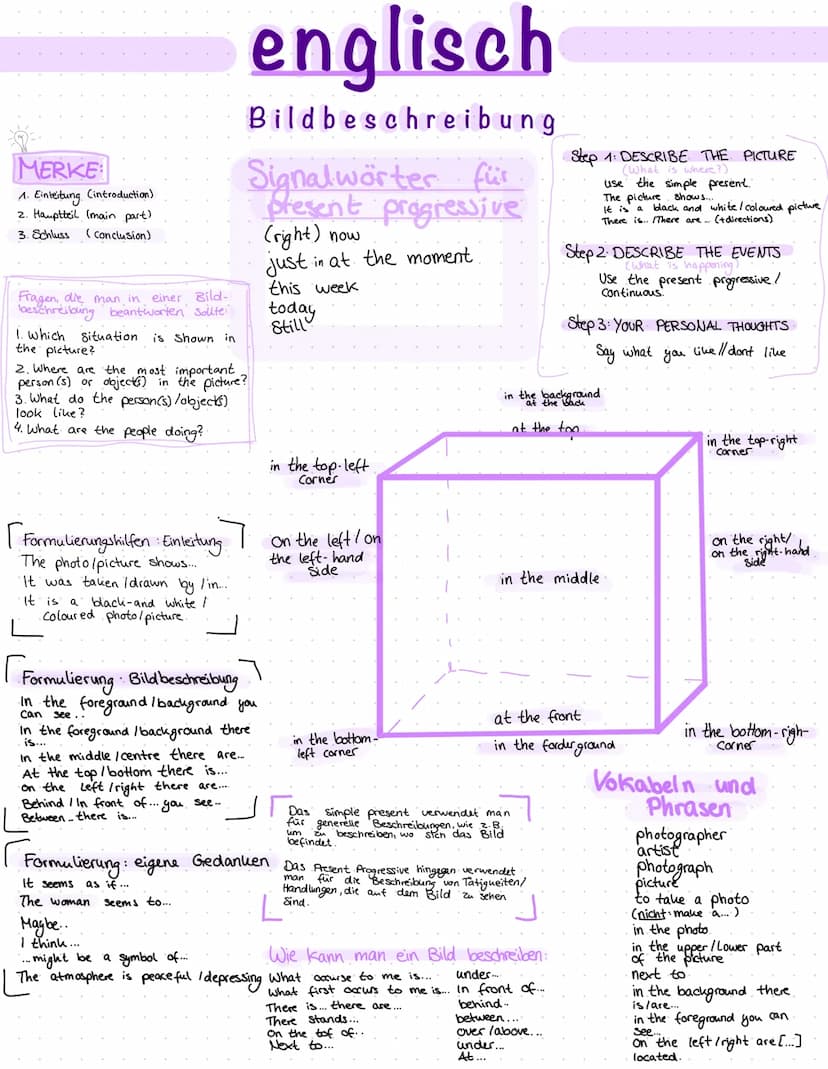 englisch
Bildbeschreibung
MERKE:
1. Einleitung (introduction)
2. Hauptteil (main part)
3. Schluss (conclusion)
Signalwörter für
present progressive
(right) now
just in at the moment
this week
today
still
Step 1: DESCRIBE THE PICTURE
(What is where?)
use the simple present.
The picture shows...
It is a black and white/coloured picture
There is.../There are... (+directions)
Step 2: DESCRIBE THE EVENTS
(What is happening)
Use the present progressive/
continuous.
Step 3: YOUR PERSONAL THOUGHTS
Say what you like//dont like
Fragen, die man in einer Bild-
beschreibung beantworten sollte:
1. Which situation is shown in
the picture?
2. Where are the most important
person(s) or object(s) in the picture?
3. What do the person(s)/object(s)
look like?
4. What are the people doing?
in the background
at the back
at the top
in the top-left
corner
in the top-right
corner
On the left/on
the left-hand
side
in the middle
on the right/
on the right-hand
side
at the front
in the bottom-
left corner
in the forderground
in the bottom-righ-
corner
Formulierungshilfen: Einleitung
The photo/picture shows...
It was taken/drawn by/in...
It is a black-and white/
coloured photo/picture
Formulierung: Bildbeschreibung
In the foreground/background you
can see...
In the foreground/background there
is...
In the middle/centre there are...
At the top/bottom there is...
on the left/right there are...
Behind/In front of... you see...
Between... there is...
Formulierung: eigene Gedanken
It seems as if...
The woman seems to...
Maybe..
I think...
...might be a symbol of...
The atmosphere is peaceful/depressing
Das simple present verwendet man
für generelle Beschreibungen, wie z.B.
um zu beschreiben, wo sich das Bild
befindet.
Das Present Progressive hingegen verwendet
man für die Beschreibung von Tätigkeiten/
Handlungen, die auf dem Bild zu sehen
sind.
Wie kann man ein Bild beschreiben:
What occurse to me is...
What first occurs to me is...
There is... there are...
There stands...
On the tof of..
Next to...
under...
In front of...
behind..
between...
over/above...
under...
At...
Vokabeln und
Phrasen
photographer
artist
photograph
picture
to take a photo
(nicht: make a...)
in the photo
in the upper/lower part
of the picture
next to
in the background there
is/are...
in the foreground you can
see...
On the left/right are [...]
located.